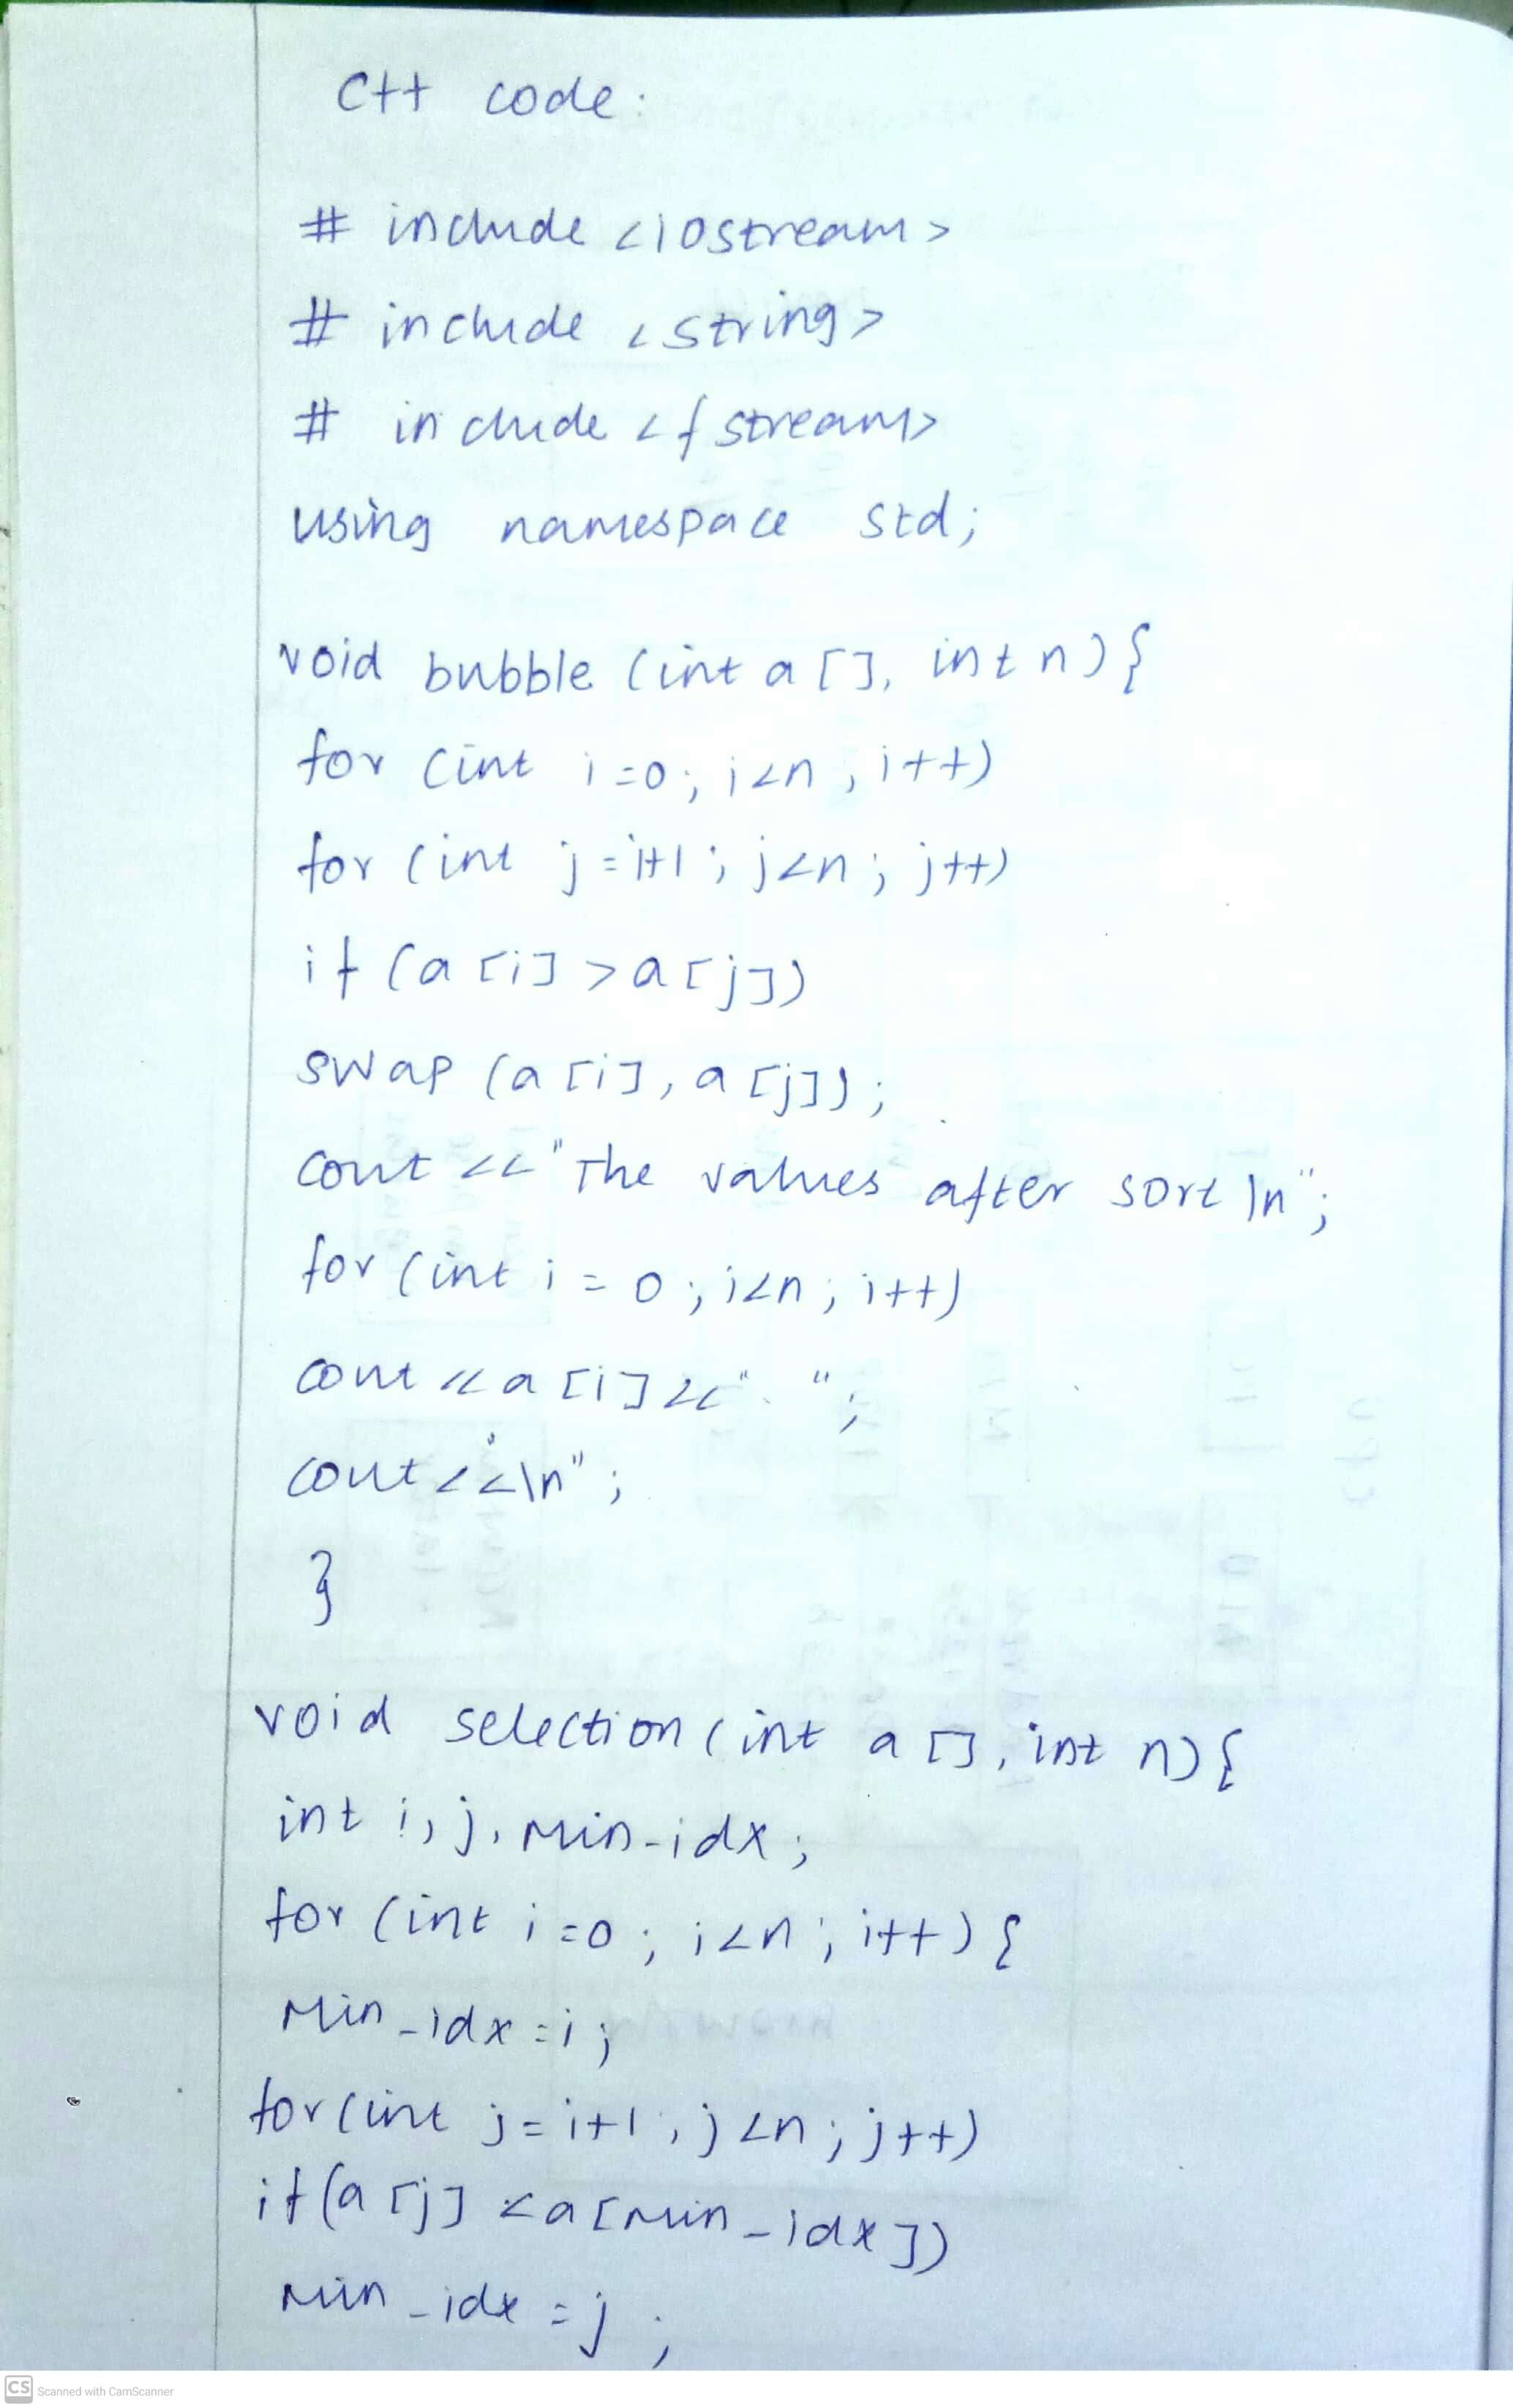 C++ code:
# include <iostream>
# include <string>
# include <fstream>
using namespace std;
void bubble (int a[], int n) {
for (int i=0; i<n; i++)
for (int j=i+1; j<n; j++)
if (a[i] >a[j])
swap (a[i], a[j]);
cout <<"The values after sort \n";
for (int i = 0; i<n; i++)
cout <<a[i]<<" ";
cout <<"\n";
}
void selection (int a[], int n) {
int i, j, min_idx;
for (int i=0; i<n; i++) {
min_idx=i;
for (int j=i+1; j<n; j++)
if (a[j] <a[min_idx])
min_idx=j;
CS Scanned with CamScanner